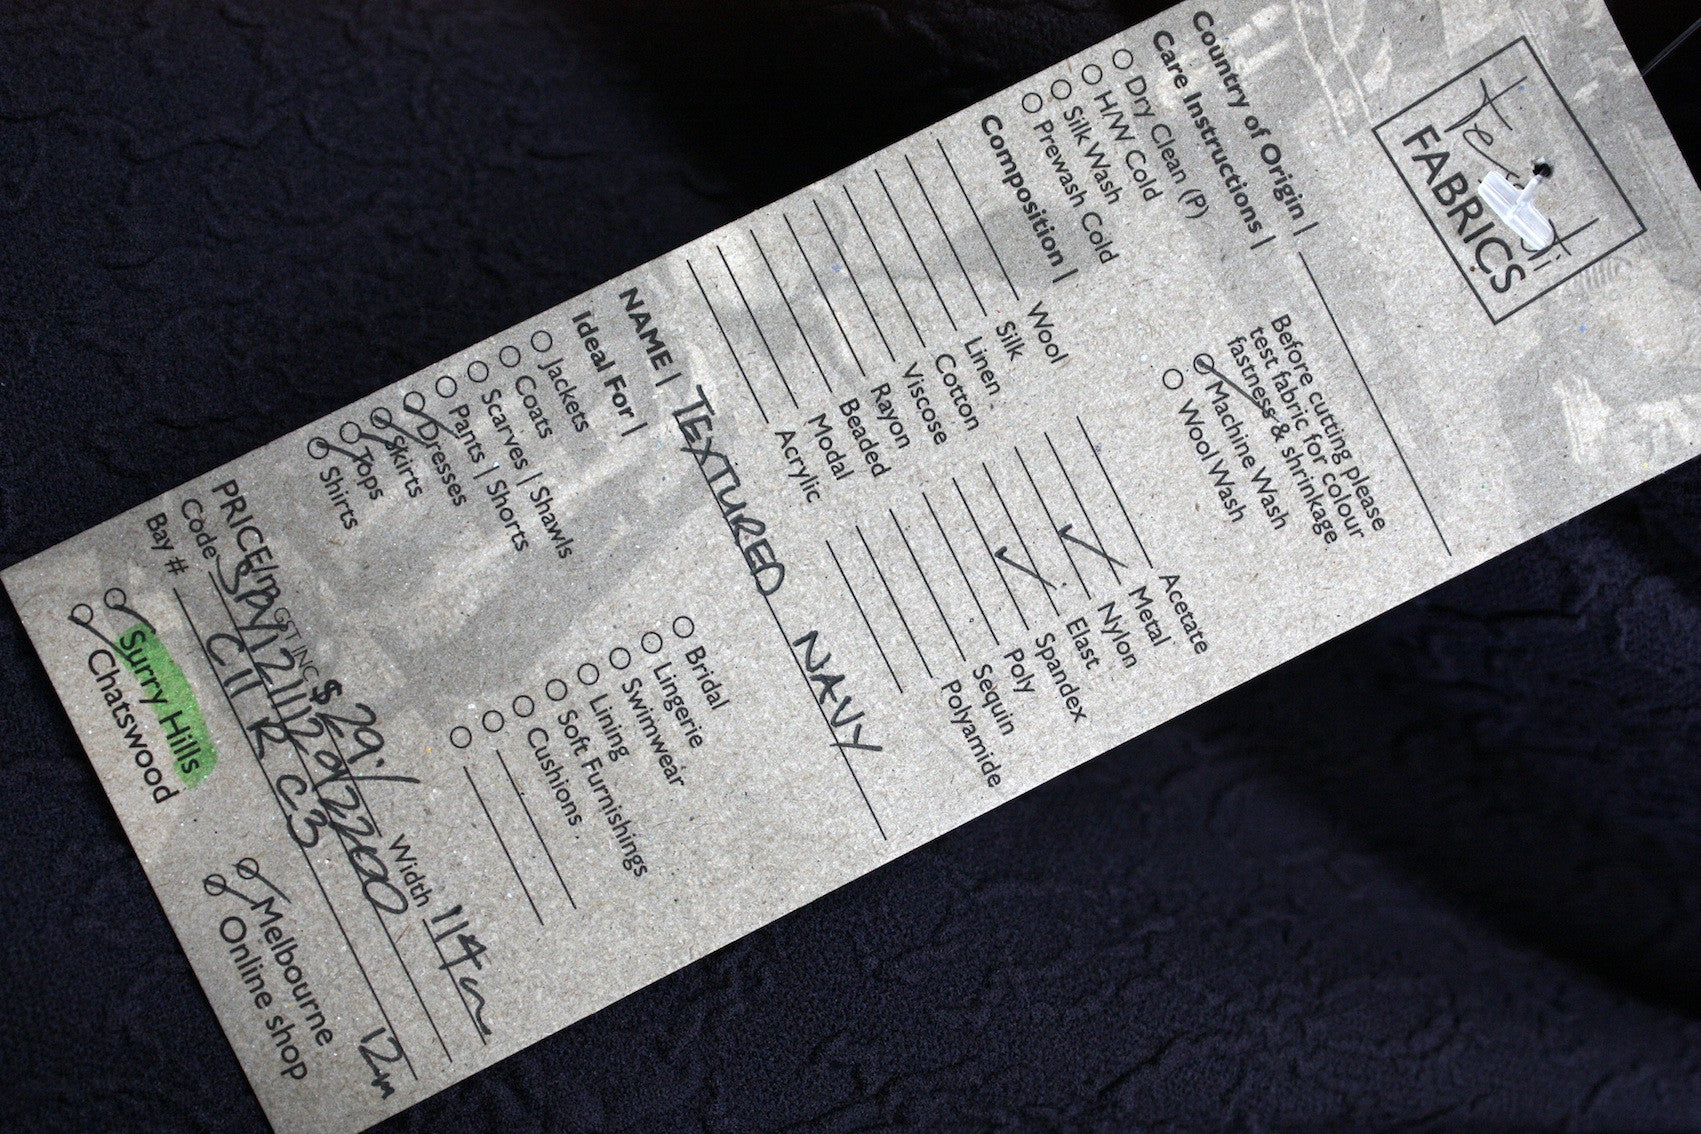 FABRICS
Country of Origin |
Care Instructions |
Dry Clean (P)
H/W Cold
Silk Wash
Prewash Cold
Before cutting please
test fabric for colour
fastness & shrinkage
Machine Wash
Wool Wash
Composition |
Wool
Silk
Linen
Cotton
Viscose
Rayon
Beaded
Modal
Acrylic
Acetate
Metal
Nylon
Elast
Spandex
Poly
Sequin
Polyamide
NAME | TEXTURED NAVY
Ideal For |
Jackets
Coats
Scarves | Shawls
Pants | Shorts
Dresses
Skirts
Tops
Shirts
Bridal
Lingerie
Swimwear
Lining
Soft Furnishings
Cushions
PRICE/m GST INC. $29.- Width 114cm
Code
Bay # C11 R C3 12m
Surry Hills
Chatswood
Melbourne
Online shop